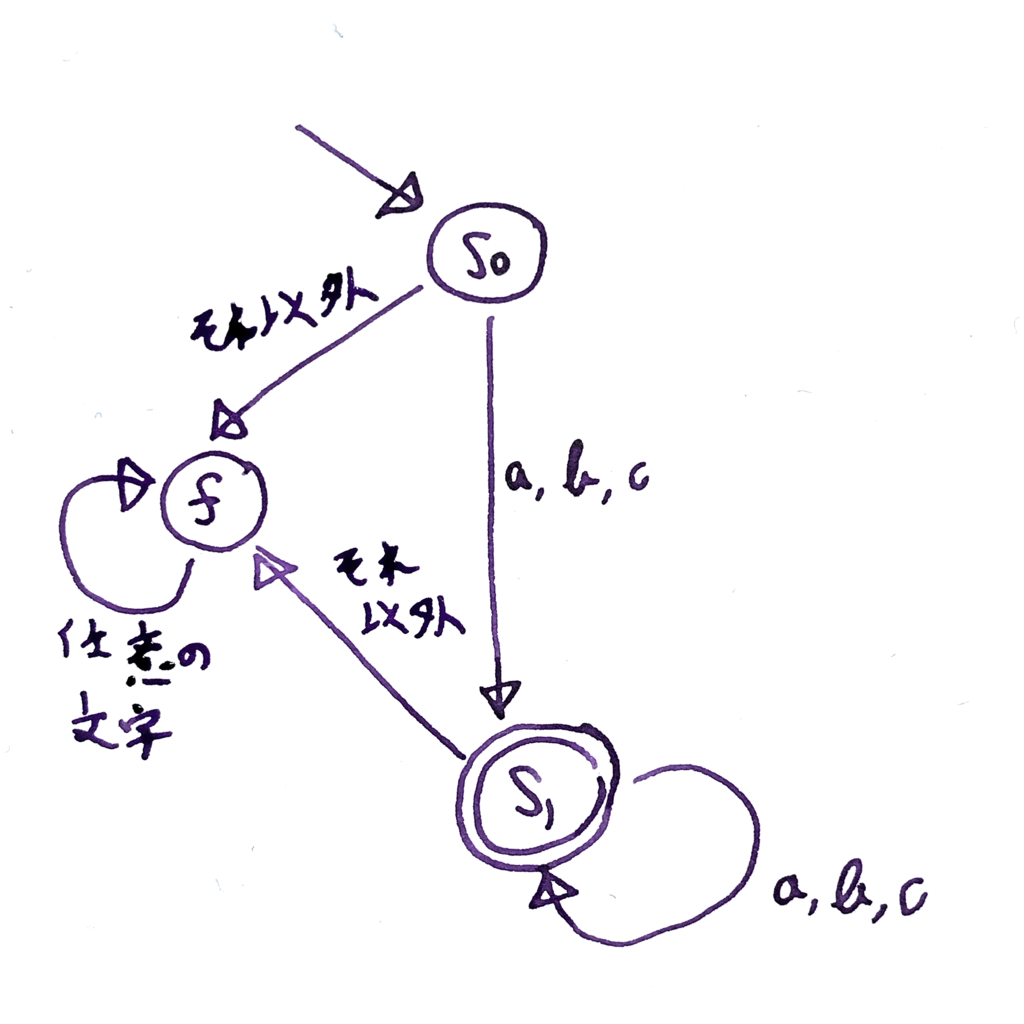 S0
それ以外
f
a, b, c
それ
以外
任意の
文字
S1
a, b, c